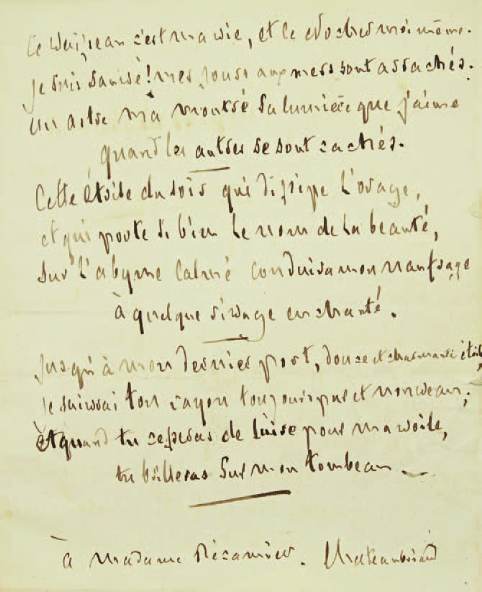 Ce vaisseau c'est ma vie, et ce nocher moi même.
Je suis sauvé ! mes jours aux mers sont arrachés.
un astre m'a montré sa lumière que j'aime
quand les autres se sont cachés.
Cette étoile du soir qui dissipe l'orage,
et qui porte si bien le nom de la beauté,
sur l'abyme calmé conduira mon naufrage
à quelque rivage enchanté.
Jusqu'à mon dernier port, douce et charmante étoile,
Je suivrai ton rayon toujours pur et nouveau;
Et quand tu cesseras de luire pour ma voile,
tu brilleras sur mon tombeau.
à madame Récamier. Chateaubriand